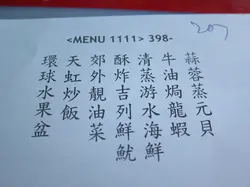 207
<MENU 1111> 398-
蒜蓉蒸元貝
牛油焗龍蝦
清蒸游水海鮮
酥炸吉列鮮魷
郊外靚油菜
天虹炒飯
環球水果盆